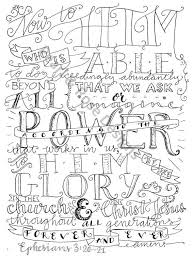 Now to HIM
WHO IS ABLE
to do exceedingly abundantly
BEYOND THAT WE ASK
ALL or imagine
POWER
ACCORDING TO THE
that works in us
TO HIM BE
GLORY
IN THE
church & Christ Jesus
throughout all generations
FOREVER AND EVER
amen
Ephesians 3:20-21